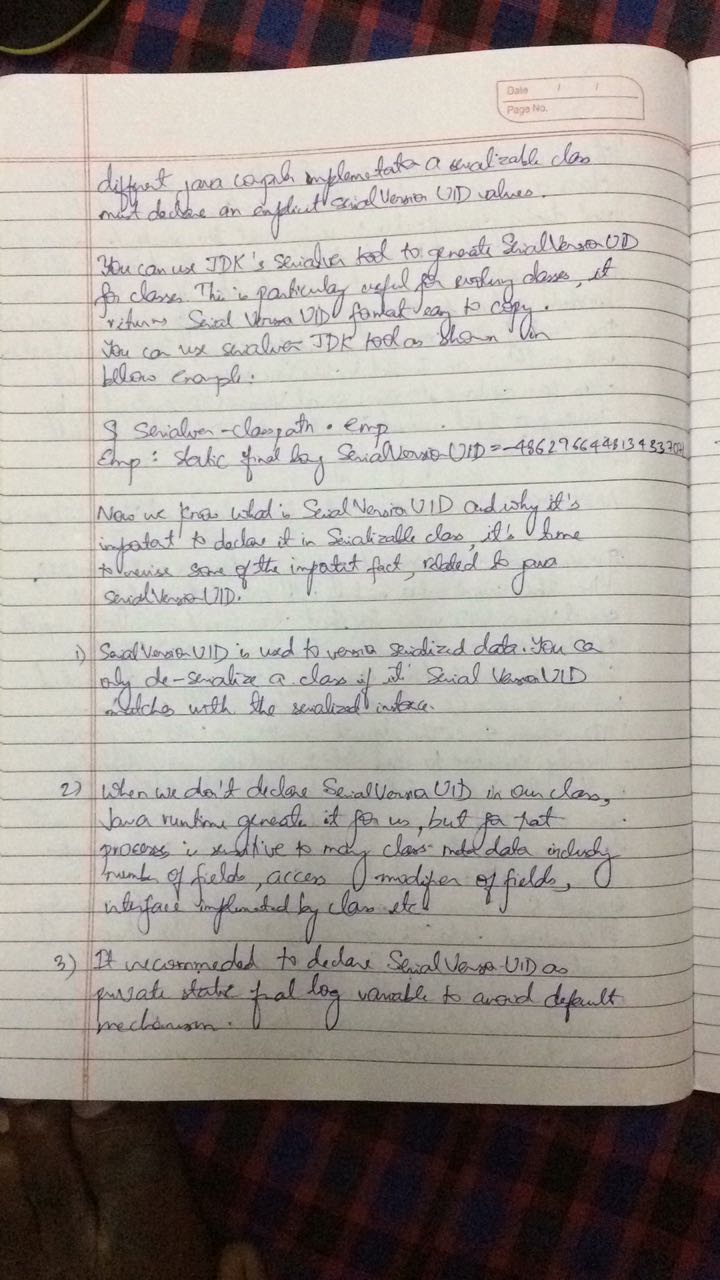 Date / /
Page No.
different java compiler implementation a serializable class
must declare an explicit serial Version UID values.
You can use JDK's serialver tool to generate Serial Version UID
for classes. This is particularly useful for evolving classes, it
returns Serial Version UID format easy to copy.
You can use serialver JDK tool as shown in
bellow example:
$ Serialver - classpath . emp
Emp : static final long Serial Version UID = -4862966448134337
Now we know what is Serial Version UID and why it's
important to declare it in Serializable class, it's time
to revise some of the important fact, related to java
Serial Version UID.
1) Serial Version UID is used to version serialized data. You can
only de-serialize a class if it's Serial Version UID
matches with the serialized instance.
2) When we don't declare Serial Version UID in our class,
Java runtime generate it for us, but for that
process is sensitive to many class meta data including
number of fields, access modifier of fields,
interface implemented by class etc
3) It recommended to declare Serial Version UID as
private static final long variable to avoid default
mechanism.